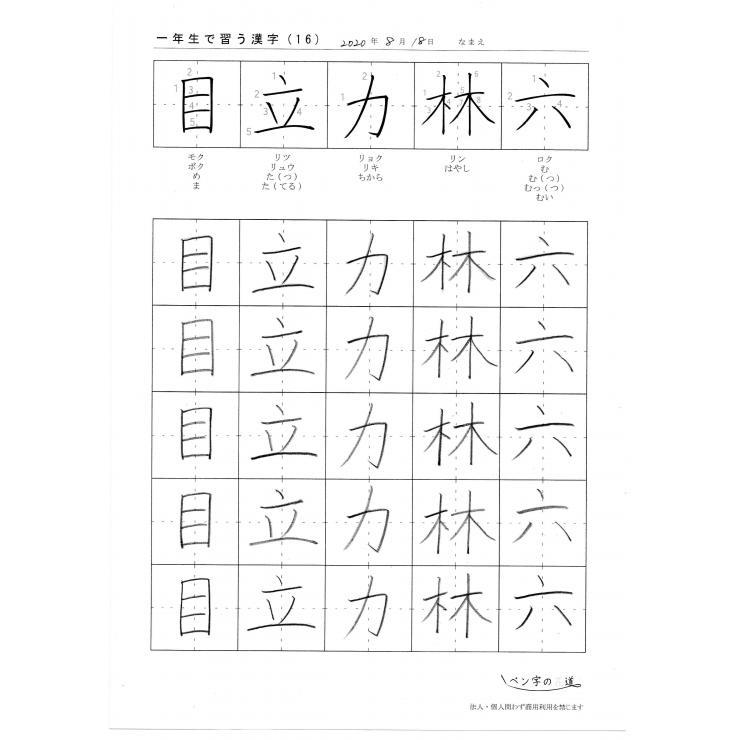 一年生で習う漢字（16） 2020年8月18日 なまえ
目 立 力 林 六
モク リツ リョク リン ロク
ボク リュウ リキ はやし む
め た（つ） ちから む（つ）
ま た（てる） むっ（つ）
むい
目 立 力 林 六
目 立 力 林 六
目 立 力 林 六
目 立 力 林 六
目 立 力 林 六
ペン字の道
法人・個人問わず商用利用を禁じます